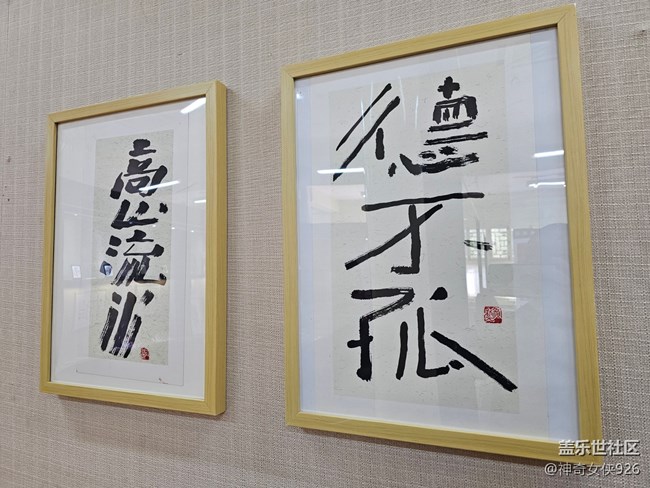 高山流水
德不孤
盖乐世社区
@神奇女侠926